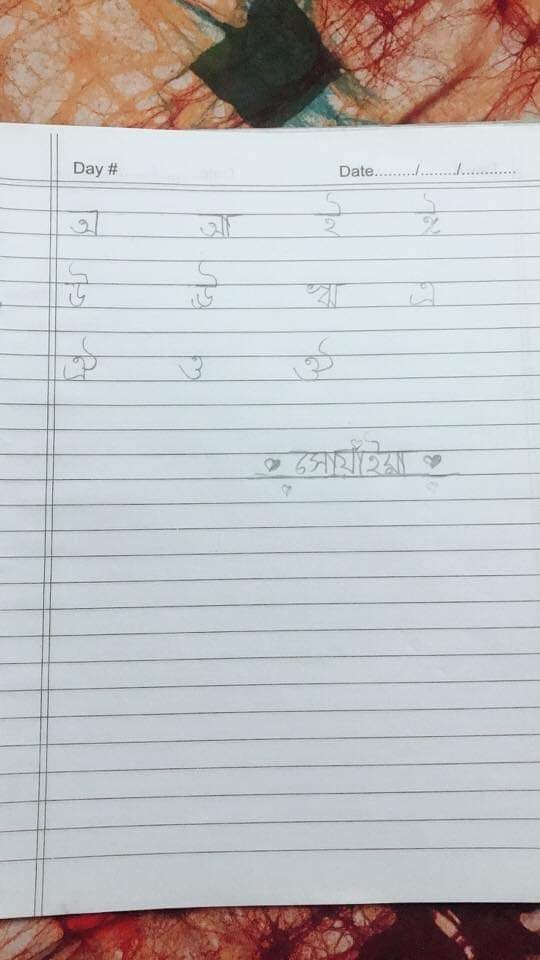 Day # Date........./......../............
অ আ ই ঈ
উ ঊ ঋ এ
ঐ ও ঔ